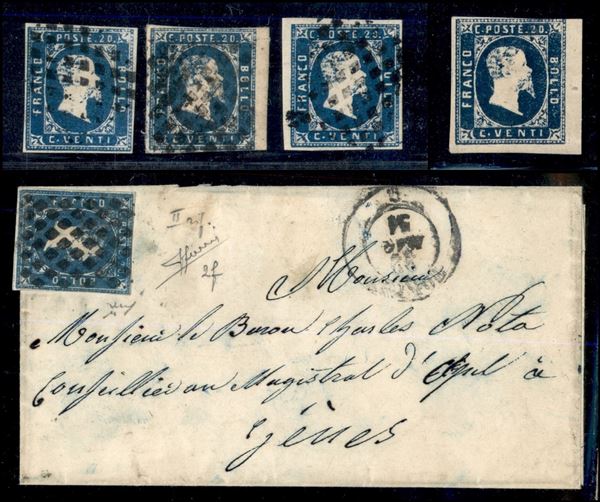 C. POSTE. 20.
FRANCO
BOLLO
C. VENTI
C. POSTE. 20.
BOLLO
C. VENTI
C. POSTE. 20.
FRANCO
BOLLO
C. VENTI
C. POSTE. 20.
FRANCO
BOLLO
C. VENTI
II
2f
MAR
54
Monsieur
Monsieur le Baron Charles Nota
Conseiller au Magistrat d'Appel à
Gênes